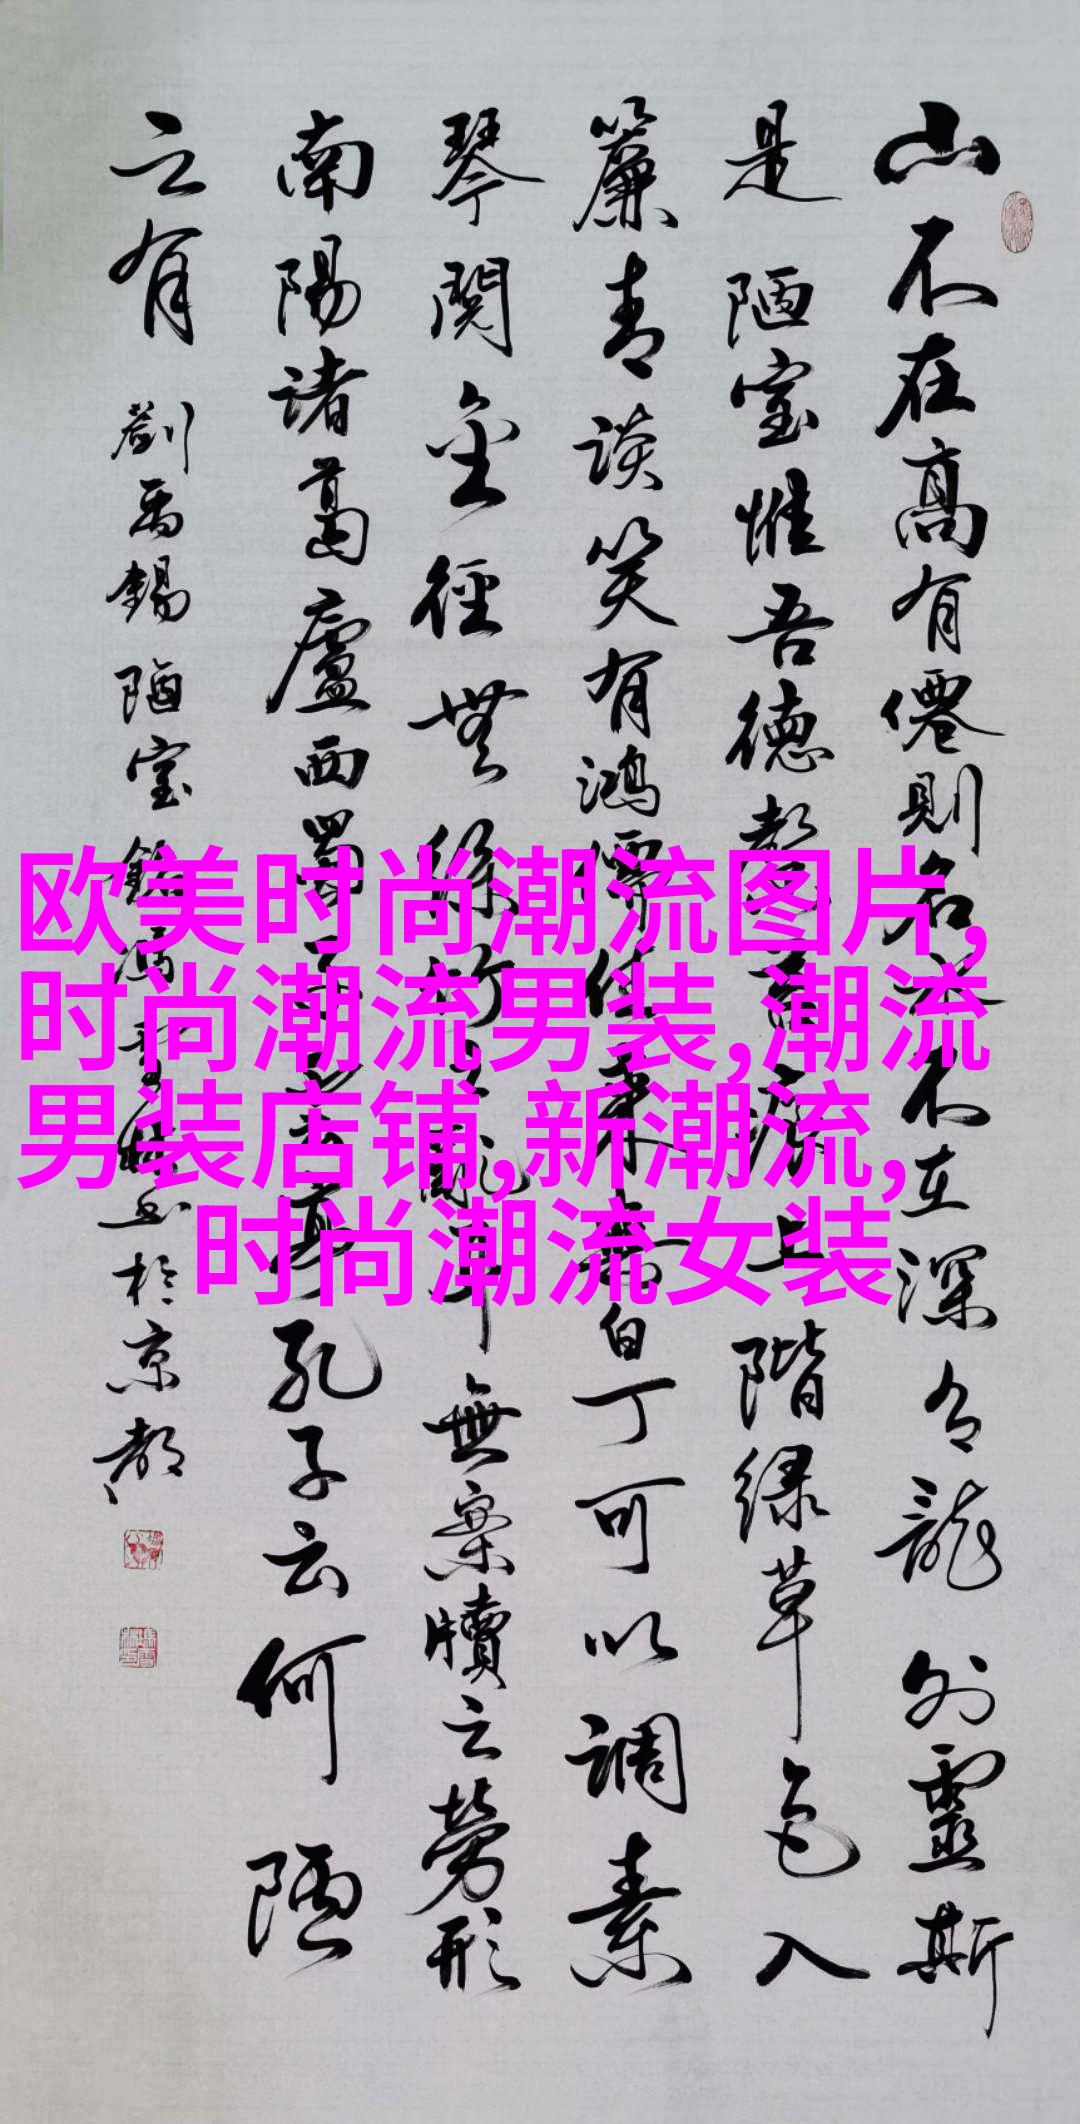 山不在高有僊則名水不在深有龍則靈斯
是陋室惟吾德馨苔痕上階緑草色入
簾青談笑有鴻儒往來無白丁可以調素
琴閱金徑無絲竹之亂耳無案牘之勞形
南陽諸葛廬西蜀子雲亭孔子云何陋
之有 劉禹錫陋室銘 書於京都
欧美时尚潮流图片,
时尚潮流男装,潮流
男装店铺,新潮流,
时尚潮流女装